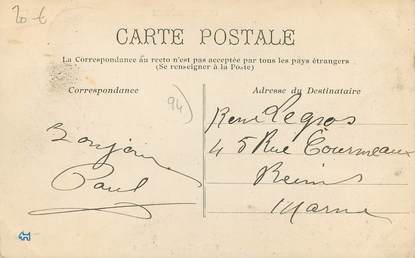 20 €
CARTE POSTALE
La Correspondance au recto n'est pas acceptée par tous les pays étrangers
(Se renseigner à la Poste)
Correspondance
Adresse du Destinataire
94)
Bonjour
Paul
René Legros
45 Rue Courmeaux
Reims
Marne